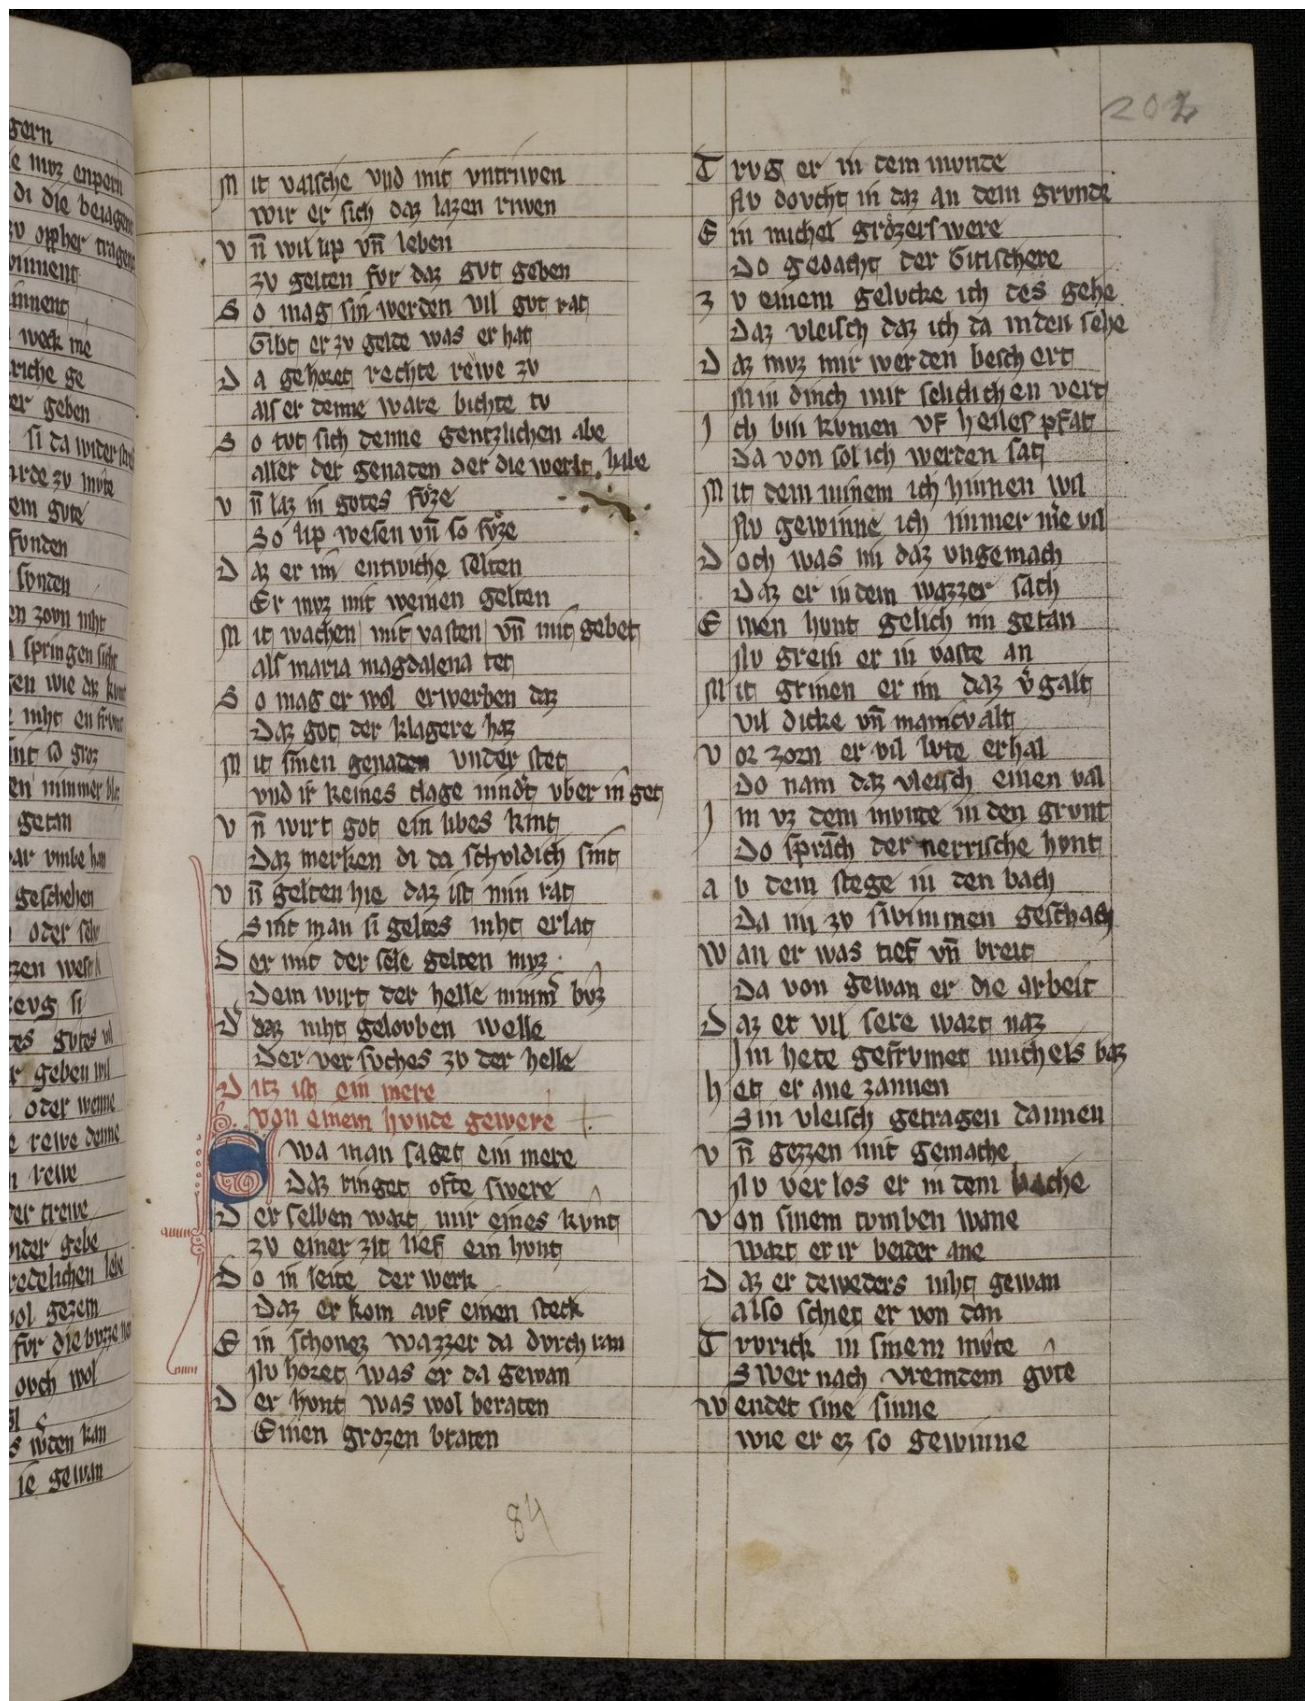 gern
e mvz enpern
di die beiagent
zv oppher tragent
innent
weck me
riche ge
er geben
si da wider
rde zv mvte
em gvte
fvnden
svnden
en zorn niht
springen siht
en wie daz
niht en
int so groz
en nimmer
getan
ar vmbe han
geschehen
oder sehe
zen
evg si
es gvtes vil
r geben wil
oder wenne
e rewe denne
n rewe
er trewe
nder gebe
redelichen lebe
ol gezem
fvr die bvzze
ovch wol
s wden kan
ie gewan
202
Mit valsche vnd mit vntriwen
wir er sich daz lazen riwen
Vn̄ wil lip vn̄ leben
zv gelten fvr daz gvt geben
So mag sin werden vil gvt rat
Gibt er zv gelte was er hat
Da gehoret rechte rewe zv
als er denne ware bichte tv
So tvt sich denne gentzlichen abe
aller der genaden der die werlt habe
Vn̄ laz in gotes fvͦze
So lip wesen vn̄ so svͦze
Daz er im entwiche selten
Er mvz mit weinen gelten
Mit wachen mit vasten vn̄ mit gebet
als maria magdalena tet
So mag er wol erwerben daz
Daz got der klagere haz
Mit sinen genaden vnder stet
vnd ir keines clage nind't vber in get
Vn̄ wirt got ein libes kint
Daz merken di da schvldich sint
Vn̄ gelten hie daz ist min rat
Sint man si geltes niht erlat
Der mit der sele gelten mvz
Dem wirt der helle nimm' bvͦz
D' daz niht gelovben welle
Der versvches zv der helle
Ditz ist ein mere
von einem hvnde gewere
Swa man saget ein mere
Daz ringet ofte swere
Der selben wart mir eines kvnt
zv einer zit lief ein hvnt
Do in leite der werk
Daz er kom avf einen steck
Ein schonez wazzer da dvrch ran
Nv horet was er da gewan
Der hvnt was wol beraten
Einen grozen braten
84
Trvg er in dem mvnde
Nv dovcht in daz an dem grvnde
Ein michel grözers were
Do gedacht der Gitischere
Zv einem gelvcke ich des gehe
Daz vleisch daz ich da inden sehe
Daz mvz mir werden beschert
Min dinch mir selichichen vert
Ich bin kvmen vf heiles pfat
Da von sol ich werden sat
Mit dem minem ich hinnen wil
Nv gewinne ich immer me vil
Doch was im daz vngemach
Daz er in dem wazzer sach
Einen hvnt gelich im getan
Nv grein er in vaste an
Mit grinen er im daz v'galt
vil dicke vn̄ manicvalt
Vor zorn er vil lvte erhal
Do nam daz vleisch einen val
Im vz dem mvnde in den grvnt
Do sprach der nerrische hvnt
ab dem stege in den bach
Da im zv swimmen geschach
Wan er was tief vn̄ breit
Da von gewan er die arbeit
Daz er vil sere wart naz
Im hete gefrvmet michels baz
Het er ane zannen
Sin vleisch getragen dannen
Vn̄ gezzen mit gemache
Nv verlos er in dem bache
Von sinem tvmben wane
wart er ir beider ane
Daz er deweders niht gewan
also schiet er von dan
Trvrick in sinem mvte
Swer nach vremdem gvte
Wendet sine sinne
wie er ez so gewinne